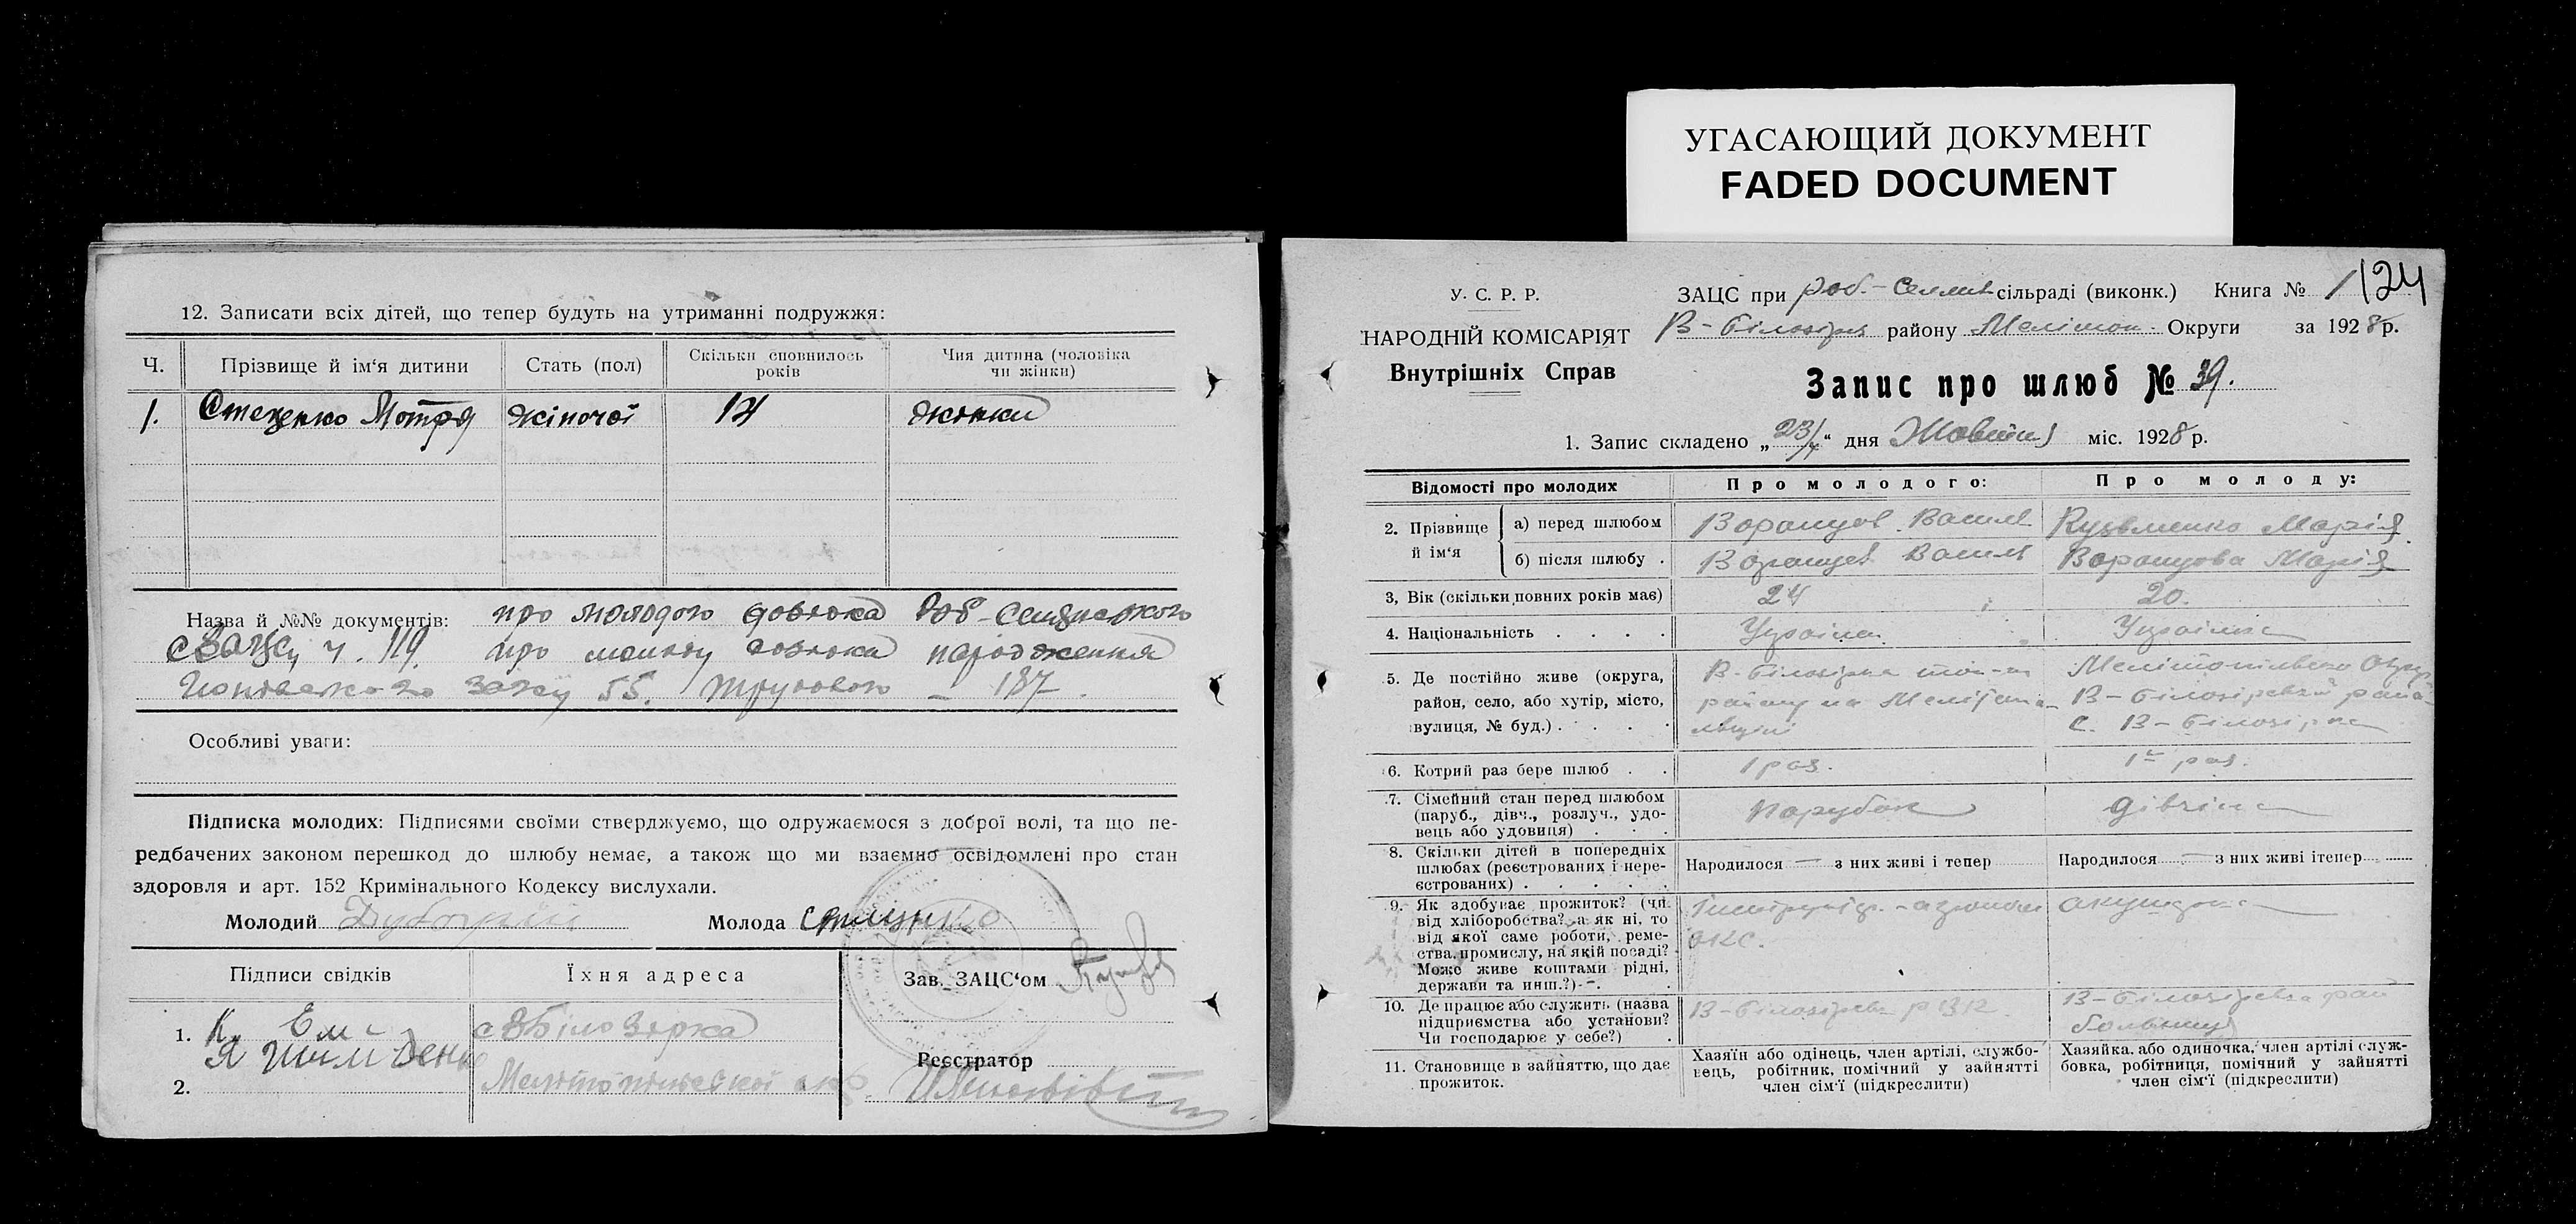 УГАСАЮЩИЙ ДОКУМЕНТ
FADED DOCUMENT
12. Записати всіх дітей, що тепер будуть на утриманні подружжя:
Ч. Прізвище й ім‘я дитини Стать (пол) Скільки сповнилось років Чия дитина (чоловіка чи жінки)
1. Стеценко Мотря жіночоі 14 жінки
Назва й №№ документів: про молодого довідка
ч. 119. про молоду довідка народження
загсу 55. – 187.
Особливі уваги:
Підписка молодих: Підписями своїми стверджуємо, що одружаємося з доброї волі, та що пе-
редбачених законом перешкод до шлюбу немає, а також що ми взаємно освідомлені про стан
здоровля и арт. 152 Кримінального Кодексу вислухали.
Молодий Молода
Підписи свідків Їхня адреса Зав. ЗАЦС‘ом
1. с ВБілозерка
Реєстратор
2. Мелітопільської окр
У. С. Р. Р.
НАРОДНІЙ КОМІСАРІЯТ
Внутрішніх Справ
ЗАЦС при сільраді (виконк.) Книга № 1 124
В-Білозірка району Мелітоп. Округи за 1928 р.
Запис про шлюб № 39.
1. Запис складено „23/“ дня Жовтня міс. 1928 р.
Відомості про молодих Про молодого: Про молоду:
2. Прізвище й ім‘я
а) перед шлюбом Воронцов Василь Кузьменко Марія
б) після шлюбу Воронцов Василь Воронцова Марія
3, Вік (скільки повних років має) 24 20.
4. Національність Україн. Українка
5. Де постійно живе (округа, В-Білозірка Мелітопільська Окр.
район, село, або хутір, місто, району на Меліто- В-Білозірський район
вулиця, № буд.) с. В-Білозірка
6. Котрий раз бере шлюб 1 раз. 1й раз.
7. Сімейний стан перед шлюбом
(паруб., дівч., розлуч., удо- Парубок Дівчина
вець або удовиця)
8. Скільки дітей в попередніх
шлюбах (реєстрованих і нере- Народилося — з них живі і тепер Народилося — з них живі ітепер
єстрованих)
9. Як здобуває прожиток? (чи агроном акушерка
від хліборобства? а як ні, то
від якої саме роботи, реме-
ства, промислу, на якій посаді?
Може живе коштами рідні,
держави та инш.?)
10. Де працює або служить (назва В-Білозірськ РВК В-Білозірська рай
підприємства або установи? больниця
Чи господарює у себе?)
11. Становище в зайняттю, що дає
прожиток.
Хазяїн або одінець, член артілі, службо-
вець, робітник, помічний у зайнятті
член сім‘ї (підкреслити)
Хазяйка. або одиночка, член артілі служ-
бовка, робітниця, помічний у зайнятті
член сім‘ї (підкреслити)